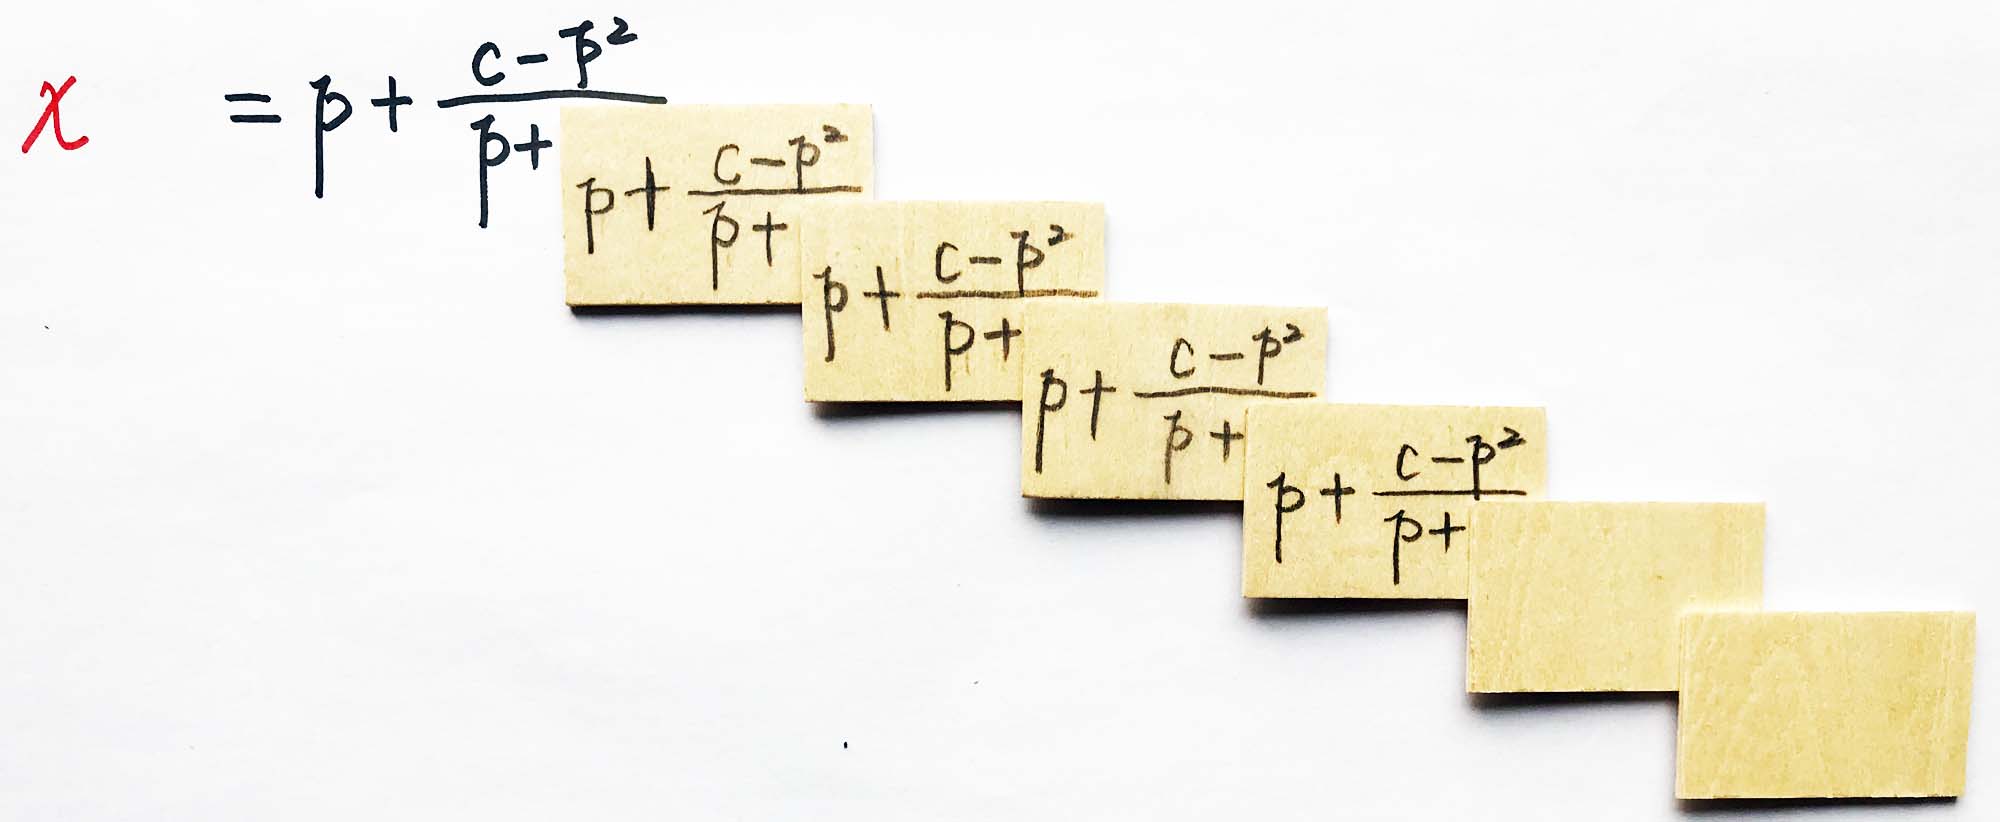 x = p + (c - p²) / (p +
p + (c - p²) / (p +
p + (c - p²) / (p +
p + (c - p²) / (p +
p + (c - p²) / (p +